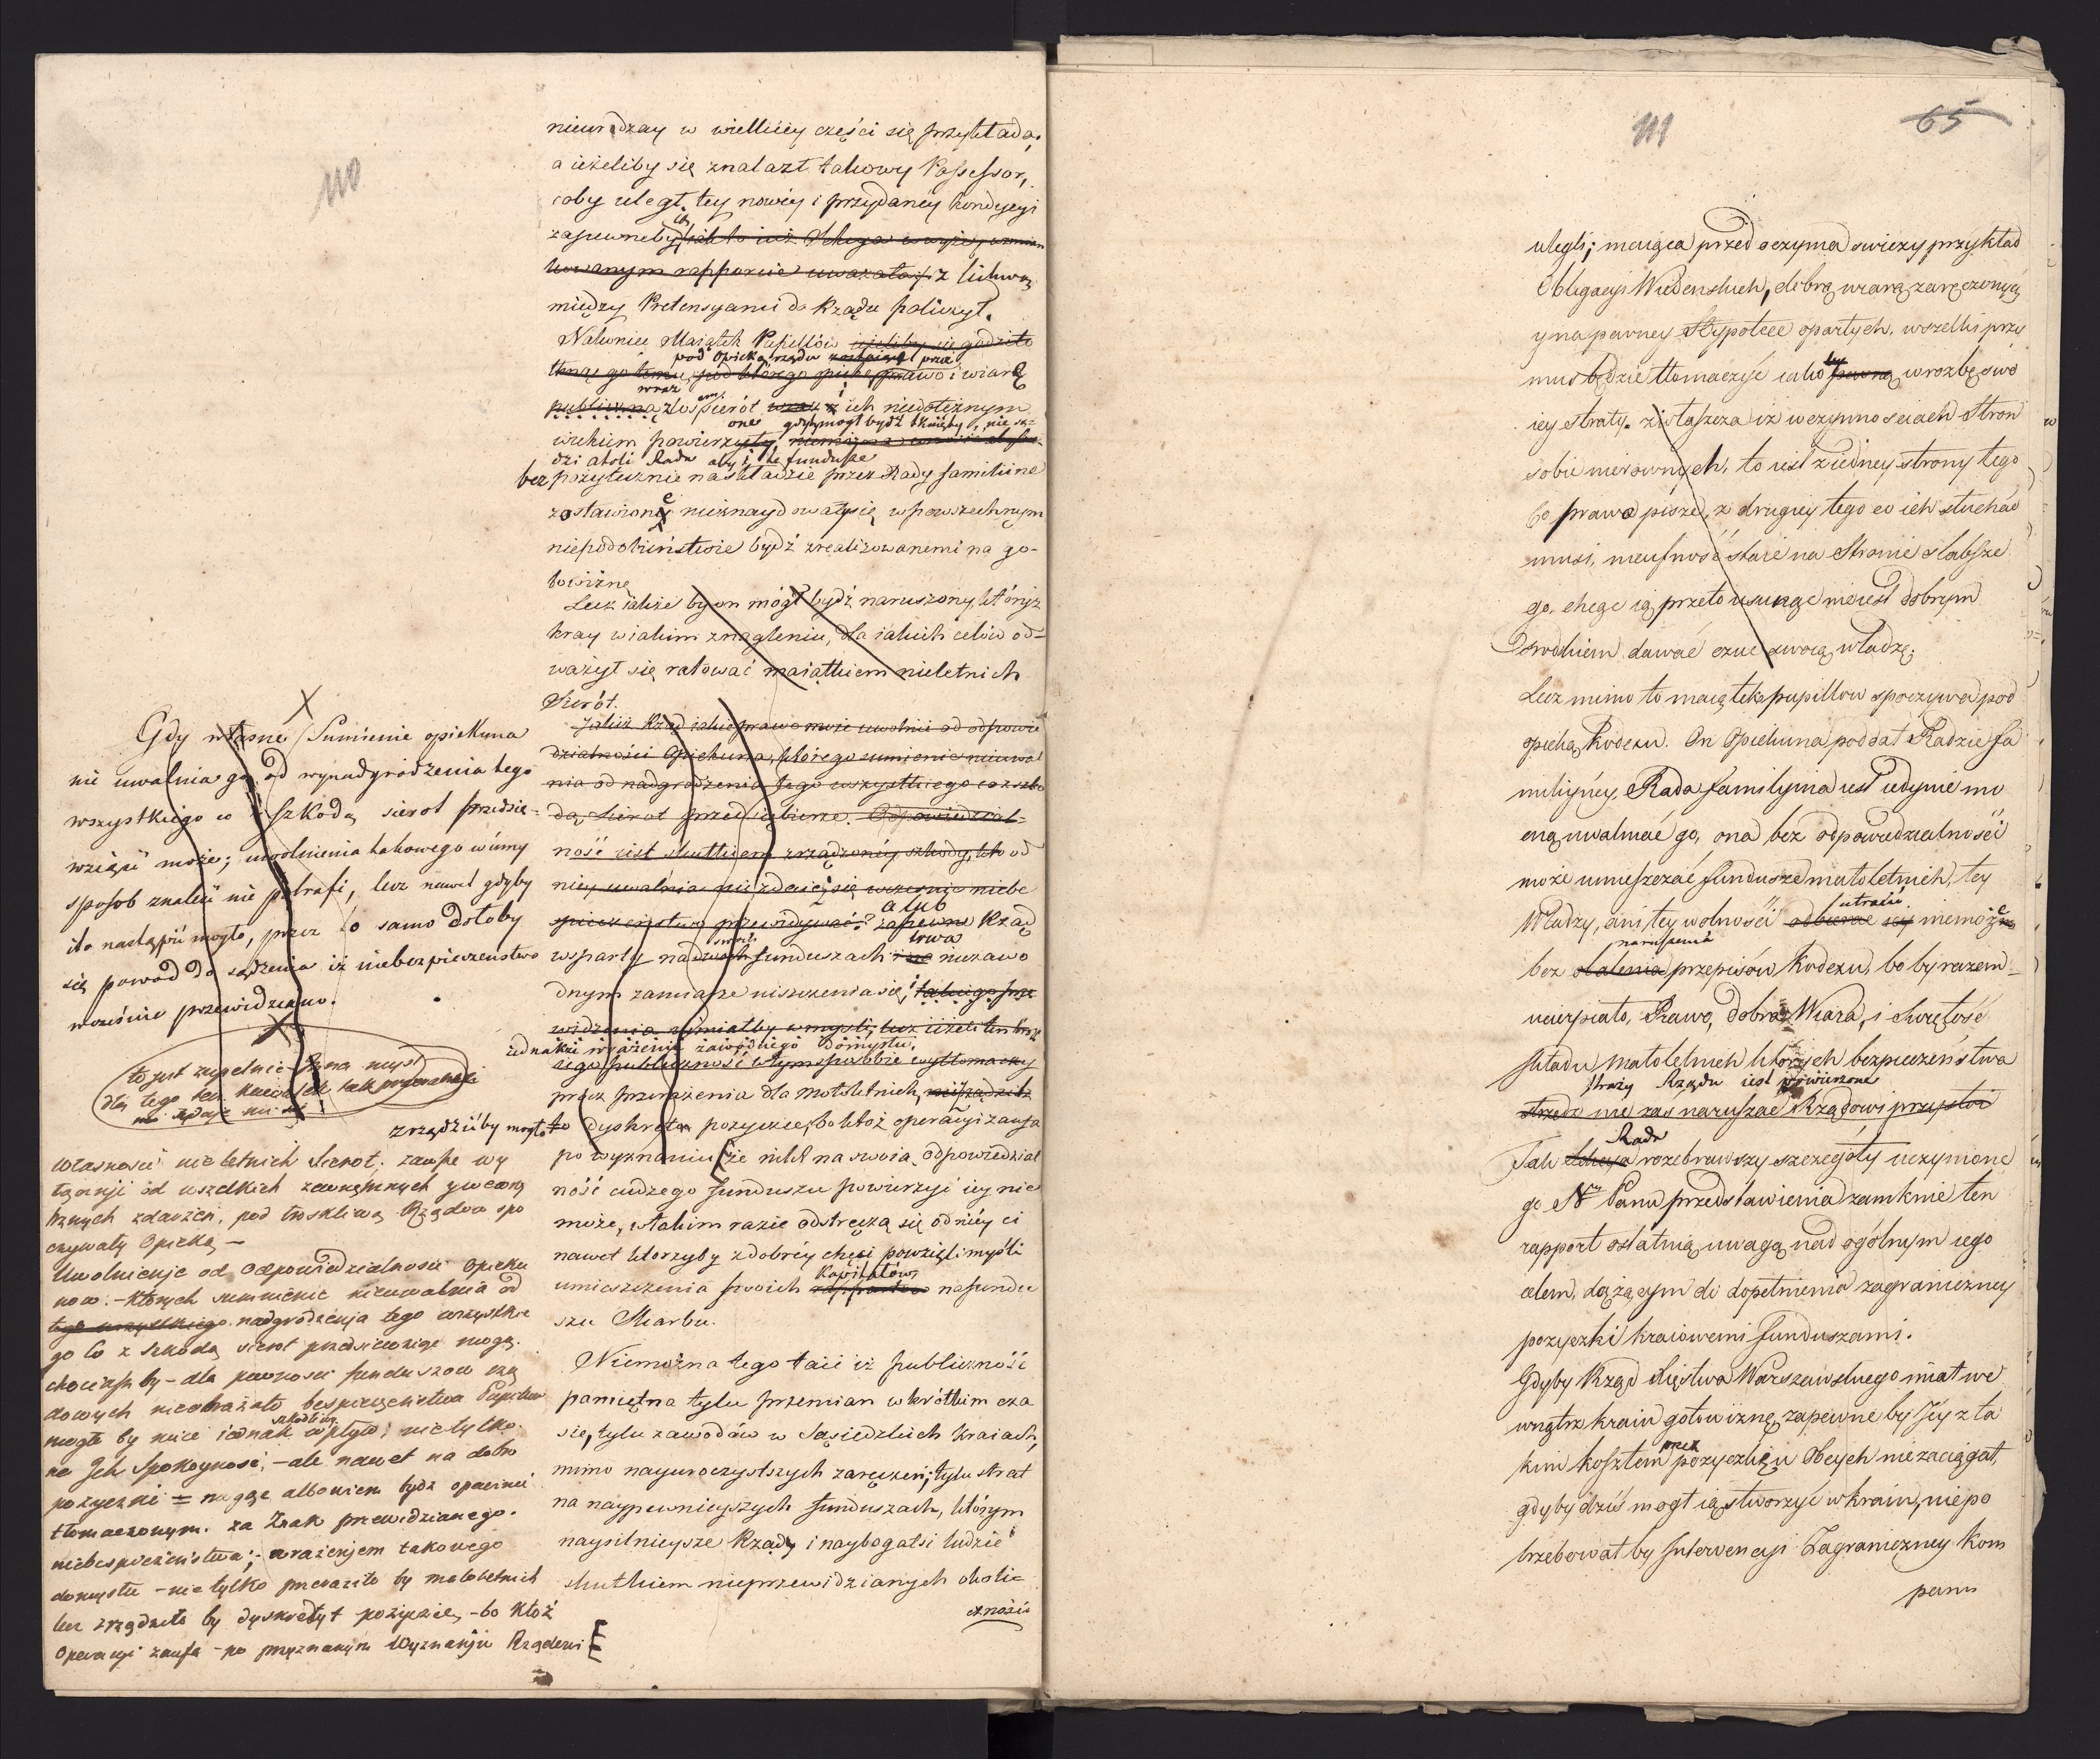 110
nieurodzay w wielkiey części się przykłada,
a ieżeliby się znalazł takowy Possessor,
coby uległ tey nowéy i przydanéy kondycyi
zapewneby ią iako iuż Seheya w wyżey wzmian
kowanym rapporcie uważała, z lichwą
między Pretensyami do Rządu policzył.
Nakoniec Maiątek Pupillów ieżeliby się godziło
pod opieką rządu zostaiący przez
tknąć go temu, pod którego opiekę prawo i wiarę
wraz
publiczną los sierót wraz z ich niedołężnym
one gdyby mogł bydź tknięty, nie są-
wiekiem powierzyły,
dzi atoli Rada aby i te fundusze
bezpożytecznie na składzie przez Rady familiine
zostawione nieznaydowały się w powszechnym
niepodobieństwie bydź zrealizowanemi na go-
towiznę
Lecz iakże by on mógł bydź naruszony, któryż
kray w iakim znagleniu, dla iakich celów od-
ważył się ratować maiątkiem nieletnich
Sierót.
Jakiż Rząd iakie prawo może uwolnić od odpowie
dzialności Opiekuna, którego sumienie nieuwal
nia od nadgrodzenia tego wszystkiego co z szko
dą Sierot przedsiębierze. Odpowiedzial-
ność iest skutkiem zrządzonéy szkody, kto od
niey uwalnia niezdaież się wcześnie niebe
spieczeństwa przewidywać? zapewne Rząd
alub
wsparty na swoich funduszach trwa niezawo
dnym zamiarze niszczenia się, takiego prze
widzenia niemiałby w myśli, lecz ieżeli ten krok
iednakże wrażenie zawodnego domysłu,
iego publiczność w tym sposobie wytłomaczy
prócz przerażenia dla małoletnich,
zrządzićby mogło dyskredyt pożyczce, bo ktoż operacyi zaufa
po wyznaniu że nikt na swoią odpowiedzial
ność cudzego funduszu powierzyć iey nie
może, w takim razie odstręczą się od niéy ci
nawet którzyby z dobréy chęci powzięli myśli
umieszczenia swoich Kapitałów na fundu
szu Skarbu.
Niemożna tego taić iż publiczność
pamiętna tylu przemian w krótkim cza
sie, tylu zawodów w Sąsiedzkich Kraiach,
mimo nayuroczystszych zaręczeń, tylu strat
na naypewnieyszych funduszach, którym
naysilnieysze Rządy i naybogatsi ludzie
skutkiem nieprzewidzianych okolic
zności
Gdy własne Sumienie opiekuna
nie uwalnia go od wynadgrodzenia tego
wszystkiego co z szkodą sierot przedsię-
wziąść może; uwolnienia takowego w inny
sposob znaleźć nie potrafi, lecz nawet gdyby
ito nastąpić mogło, przez to samo dałoby
się powod do sądzenia iż niebezpieczeństwo
wcześnie przewidziano.
to iest zupełnie inna myśl
dla tego ten kawałek tak przerobiony
własności nieletnich Sierot; zawsze wy
łączonji od wszelkich zewnętrznych y wewnę
trznych zdarzeń, pod troskliwą Rządów spo
czywały Opieką –
Uwolnienje od odpowiedzialności Opieku
now. – ktorych sumnienie nieuwalnia od
tego wszystkiego nadgrodzenja tego wszystkie
go co z szkodą sierot przedsiewziąć mogą.
chociażby – dla pewnosci funduszow rzą
dowych nieobrażało bespieczeństwa Pupillow
mogło by mieć iednak szkodliwy wpływ; nietylko
na Jch Spokoyność, – ale nawet na dobro
pożyczki = mogąc albowiem bydz opacznie
tłomaczonym. za Znak przewidzianego
niebespieczeństwa; – wrażenjem takowego
domysłu – nie tylko przeraziło by małoletnich
lecz zrządziło by dyskredyt pożyczce, – bo ktoż
Operacyi zaufa – po przyznanym wyznanju Rządowi
111
65
ulegli; maiąca przed oczyma swieży przykład
Obligacyi Wiedeńskich, dobrą wiarą zaręczonych
y na pewney Hypotece opartych, wszelki przy
mus będzie tłomaczyć iako pewną wrozbę swo
iey straty. zwłaszcza iż w czynnościach Stron
sobie nierównych, to iest z iedney strony tego
co prawo pisze, z drugiey tego co ich słuchać
musi, nieufność staie na Stronie słabsze
go, chcąc ią przeto usunąć nieiest dobrym
Srodkiem dawać czuć swoią władzę;
Lecz mimo to maiątek pupillow spoczywa pod
opieką Kodexu. On Opiekuna poddał Radzie fa
miliyney, Rada familyina iest iedynie mo
cną uwalniać go, ona bez odpowiedzialności
może umieszczać fundusze małoletnich, tey
Władzy, ani tey wolności utracić niemoże
bez naruszenia przepisów Kodexu, bo by razem
ucierpiało, Prawo, dobra Wiara, i Swiętość
składu Małoletnich których bezpieczeństwa
straży Rządu iest powierzone
strzedz nie zaś naruszać Rządowi przystoi
Tak Rada rozebrawszy szczegóły uczynione
go Jr Panu przedstawienia zamknie ten
rapport ostatnią uwagą nad ogólnym iego
celem, dążącym do dopełnienia zagraniczney
pożyczki kraiowemi funduszami.
Gdyby Rząd Xięstwa Warszawskiego miał we
wnątrz kraiu gotowiznę, zapewne by Jey z ta
kim kosztem przez pożyczkę u Obcych niezaciągał,
gdyby dziś mogł ią stworzyć w kraiu, niepo
trzebował by Jnterwencyi Zagraniczney Kom
panii